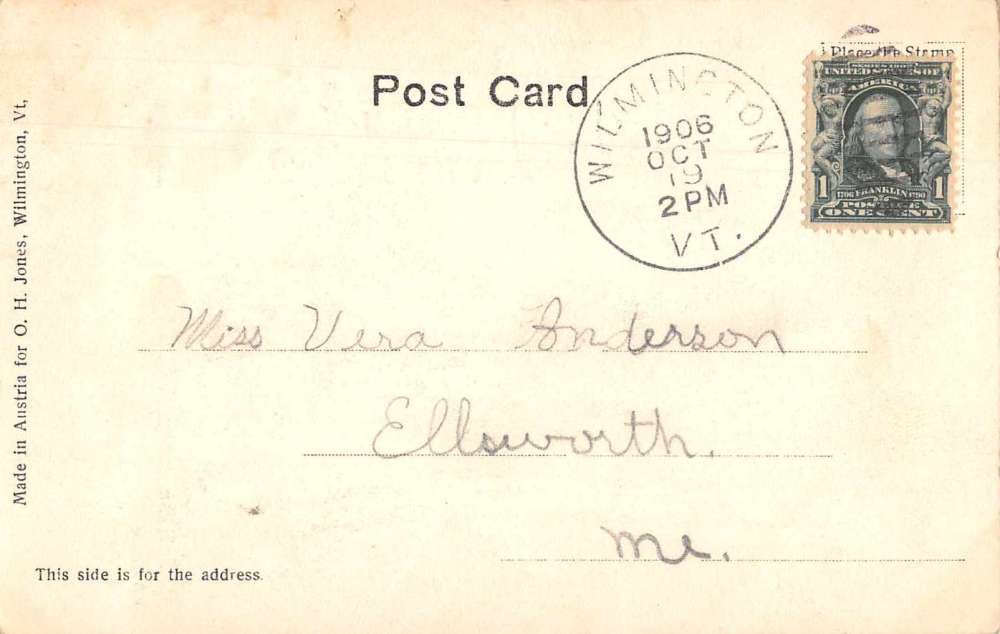 Post Card
Place the Stamp
WILMINGTON
1906
OCT
19
2 PM
VT.
SERIES 1902
UNITED STATES OF
AMERICA
1
1706 FRANKLIN 1790
1
POSTAGE
ONE CENT
Made in Austria for O. H. Jones, Wilmington, Vt,
Miss Vera Anderson
Ellsworth.
Me.
This side is for the address.